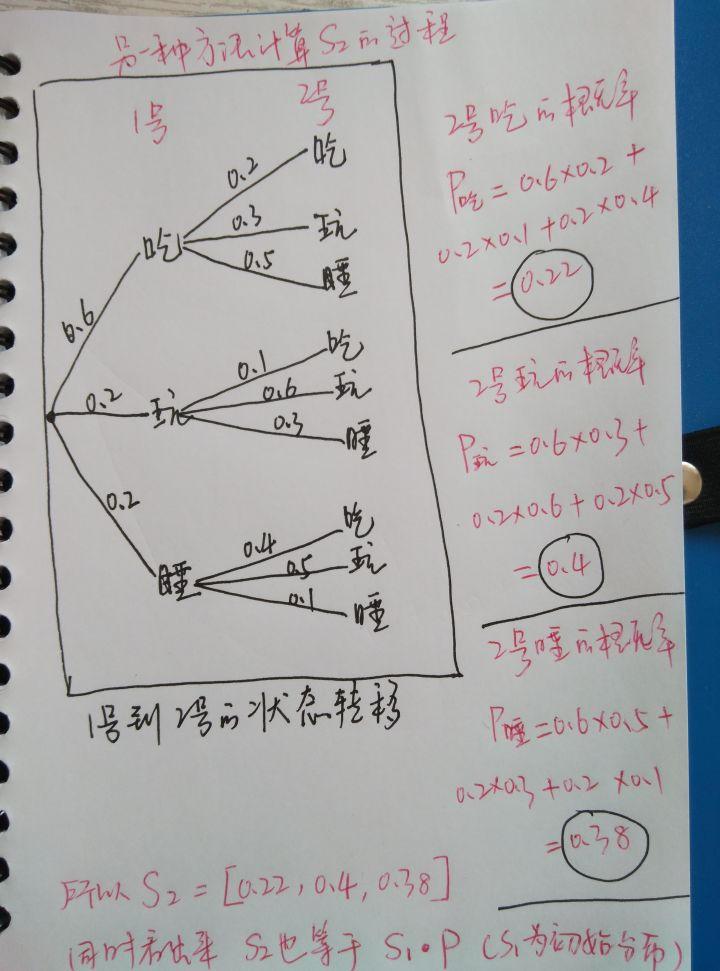 另一种方法计算S₂的过程
1号 2号
0.6 吃 0.2 吃
0.3 玩
0.5 睡
0.2 玩 0.1 吃
0.6 玩
0.3 睡
0.2 睡 0.4 吃
0.5 玩
0.1 睡
1号到2号的状态转移
2号吃的概率
P吃 = 0.6×0.2 +
0.2×0.1 + 0.2×0.4
= 0.22
2号玩的概率
P玩 = 0.6×0.3 +
0.2×0.6 + 0.2×0.5
= 0.4
2号睡的概率
P睡 = 0.6×0.5 +
0.2×0.3 + 0.2 ×0.1
= 0.38
所以 S₂ = [0.22, 0.4, 0.38]
同时看出来 S₂也等于 S₁•P (S₁为初始分布)